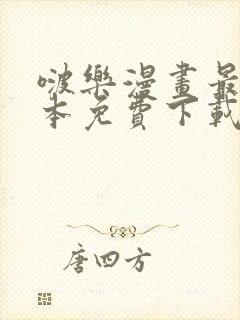 啵樂漫畫最
本免費下載
唐四方